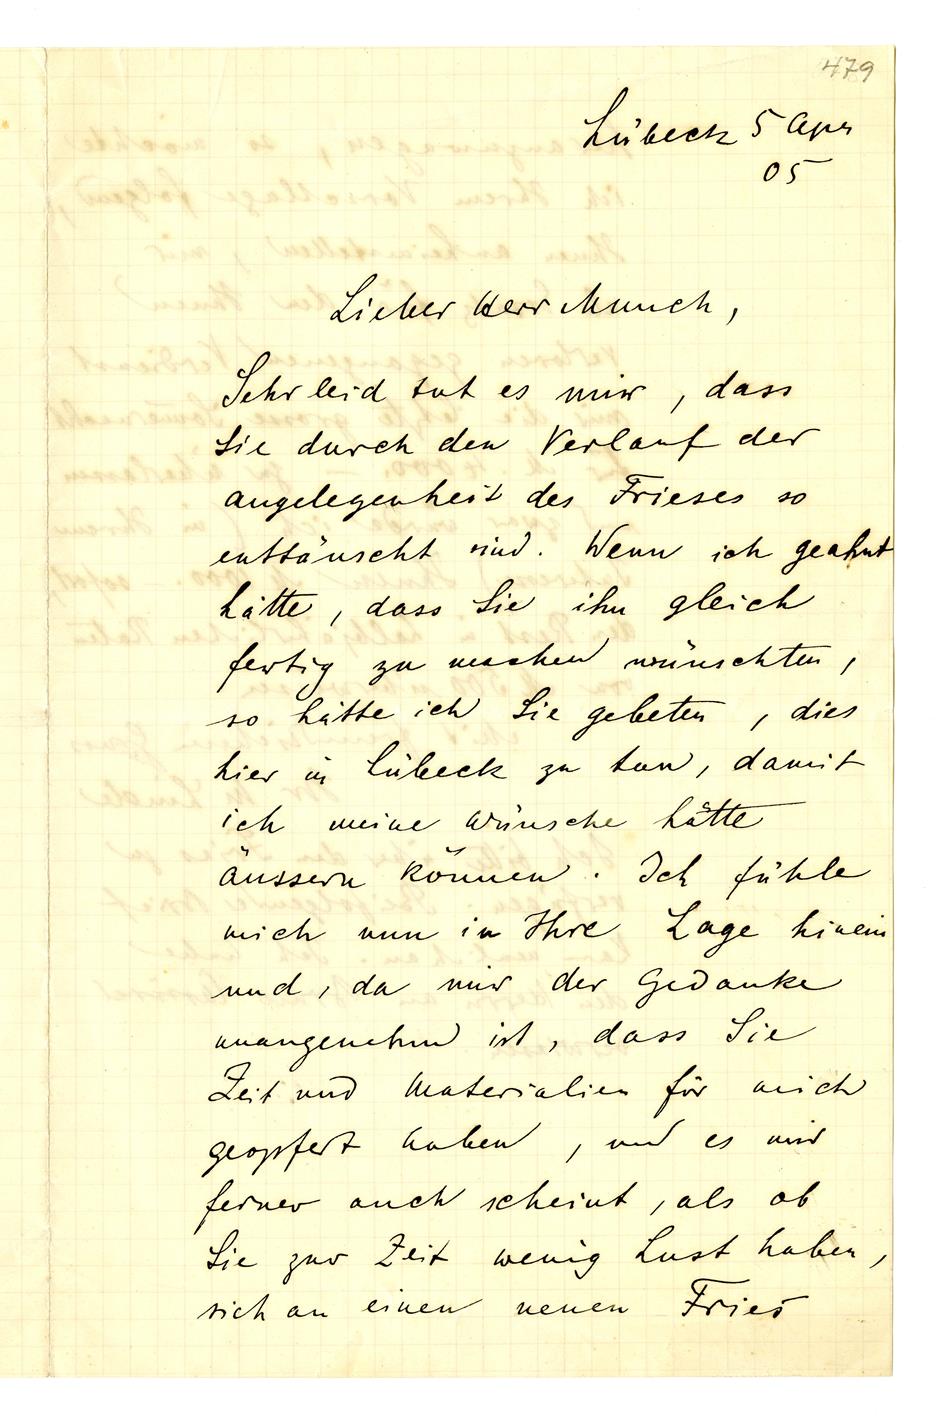 479
Lübeck 5 Apr
05
Lieber Herr Munch,
Sehr leid tut es mir, dass
Sie durch den Verlauf der
Angelegenheit des Frieses so
enttäuscht sind. Wenn ich geahnt
hätte, dass Sie ihn gleich
fertig zu machen wünschten,
so hätte ich Sie gebeten, dies
hier in Lübeck zu tun, damit
ich meine Wünsche hätte
äussern können. Ich fühle
mich nun in Ihre Lage hinein
und, da mir der Gedanke
unangenehm ist, dass Sie
Zeit und Materialien für mich
geopfert haben, und es mir
ferner auch scheint, als ob
Sie zur Zeit wenig Lust haben,
sich an einen neuen Fries